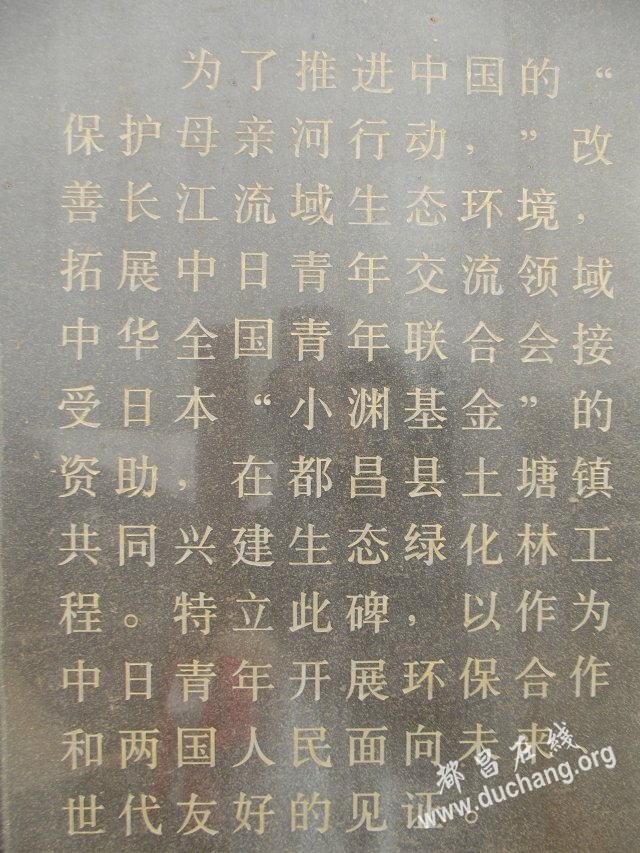 为了推进中国的“
保护母亲河行动，”改
善长江流域生态环境，
拓展中日青年交流领域
中华全国青年联合会接
受日本“小渊基金”的
资助，在都昌县土塘镇
共同兴建生态绿化林工
程。特立此碑，以作为
中日青年开展环保合作
和两国人民面向未来
世代友好的见证。
都昌在线
www.duchang.org